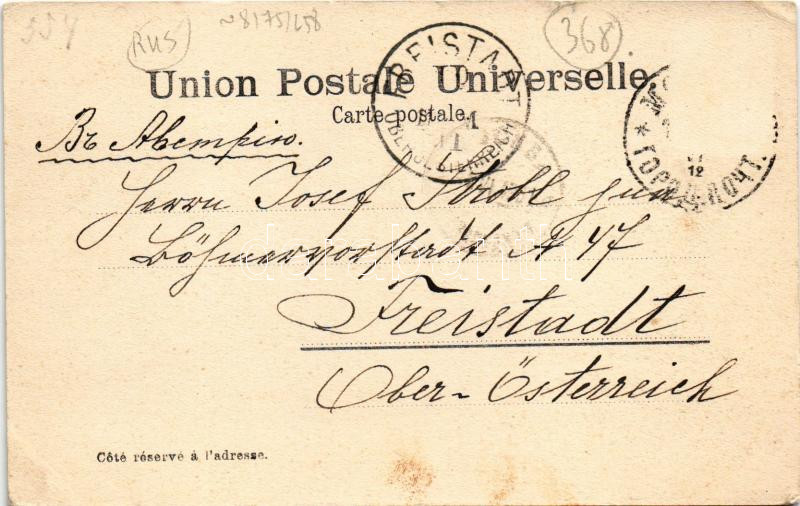 554
RUS
~8175/258
368
Union Postale Universelle.
Carte postale.
FREISTADT
OBERÖSTERREICH
ГОРОД. ПОЧТ.
Въ Австрію.
Herrn Josef Strobl jun
Böhmervorstadt № 47
Freistadt
Ober-Österreich
Côté réservé à l'adresse.